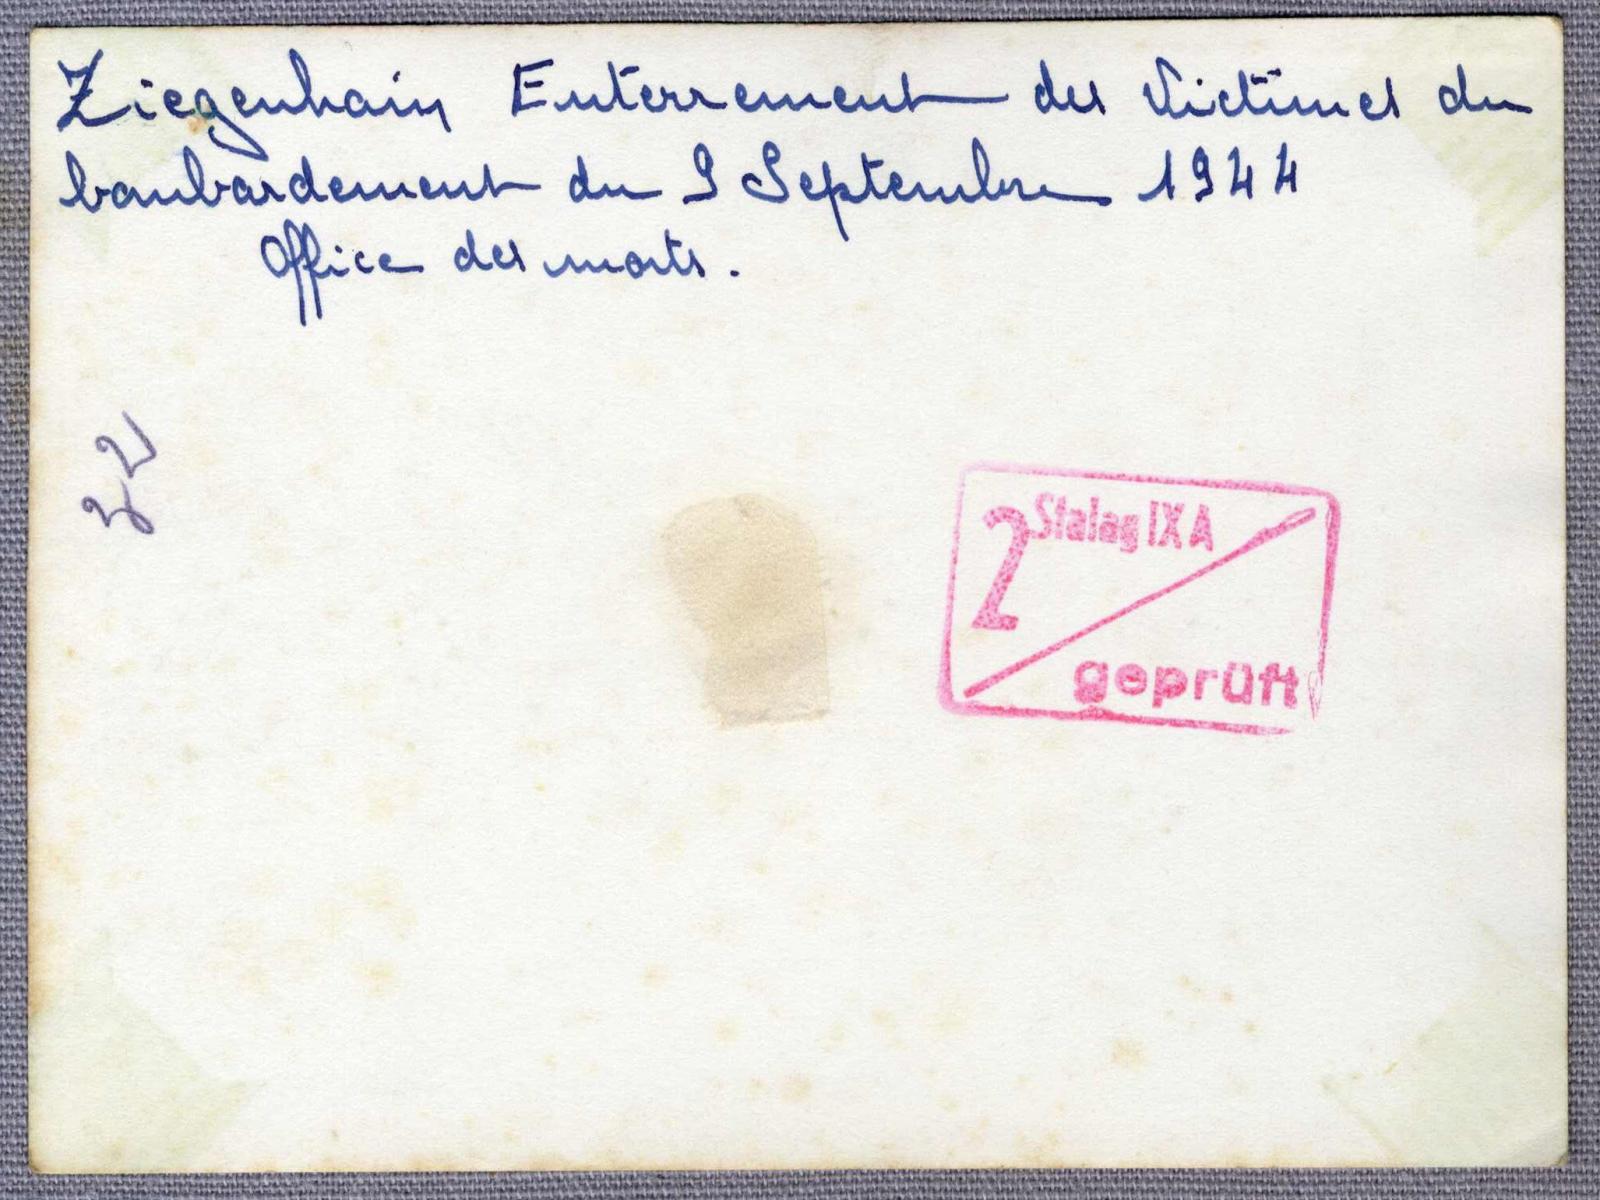 Ziegenhain Enterrement des Victimes du
bombardement du 9 Septembre 1944
Office des morts.
22
2 Stalag IX A
geprüft